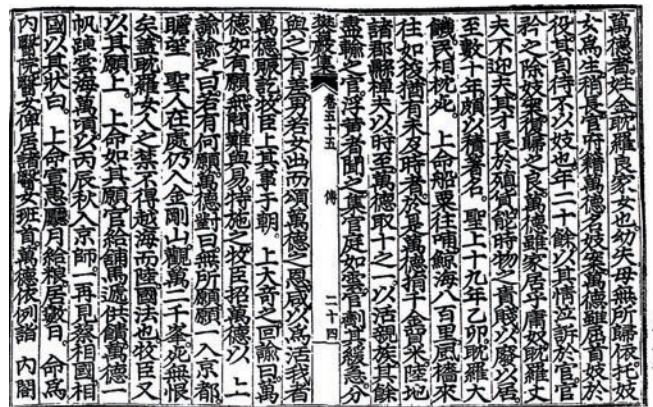 萬德者。姓金。耽羅良家女也。幼失母無所歸依。托妓
女爲生。稍長。官府籍萬德名妓案。萬德雖屈首妓於
役。其自待不以妓也。年二十餘。以其情泣訴於官。官
矜之。除妓案復歸之良。萬德雖家居乎庸奴。耽羅丈
夫不迎夫。其才長於殖貨。能時物之貴賤。以廢以居。
至數十年。頗以積著名。 聖上十九年乙卯。耽羅大
饑。民相枕死。 上命船粟往哺。鯨海八百里。風檣來
往如梭。猶有未及時者。於是萬德捐千金貿米。陸地
諸郡縣棹夫以時至。萬德取十之一。以活親族。其餘
盡輸之官。浮黃者聞之。集官庭如雲。官劑其緩急。分
樊巖集 卷五十五 傳 二十四
與之有差。男若女出而頌萬德之恩。咸以爲活我者
萬德。賑訖。牧臣上其事于朝。 上大奇之。回諭曰。萬
德如有願。無問難與易。特施之。牧臣招萬德以 上
諭諭之曰。若有何願。萬德對曰。無所願。願一入京都。
瞻望 聖人在處。仍入金剛山。觀萬二千峯。死無恨
矣。盖耽羅女人之禁不得越海而陸。國法也。牧臣又
以其願上。 上命如其願。官給舖馬。遞供饋。萬德一
帆踔雲海萬頃。以丙辰秋入京師。一再見蔡相國。相
國以其狀白。 上命宣惠廳月給粮。居數日。 命爲
內醫院醫女。俾居諸醫女班首。萬德依例詣 內閤